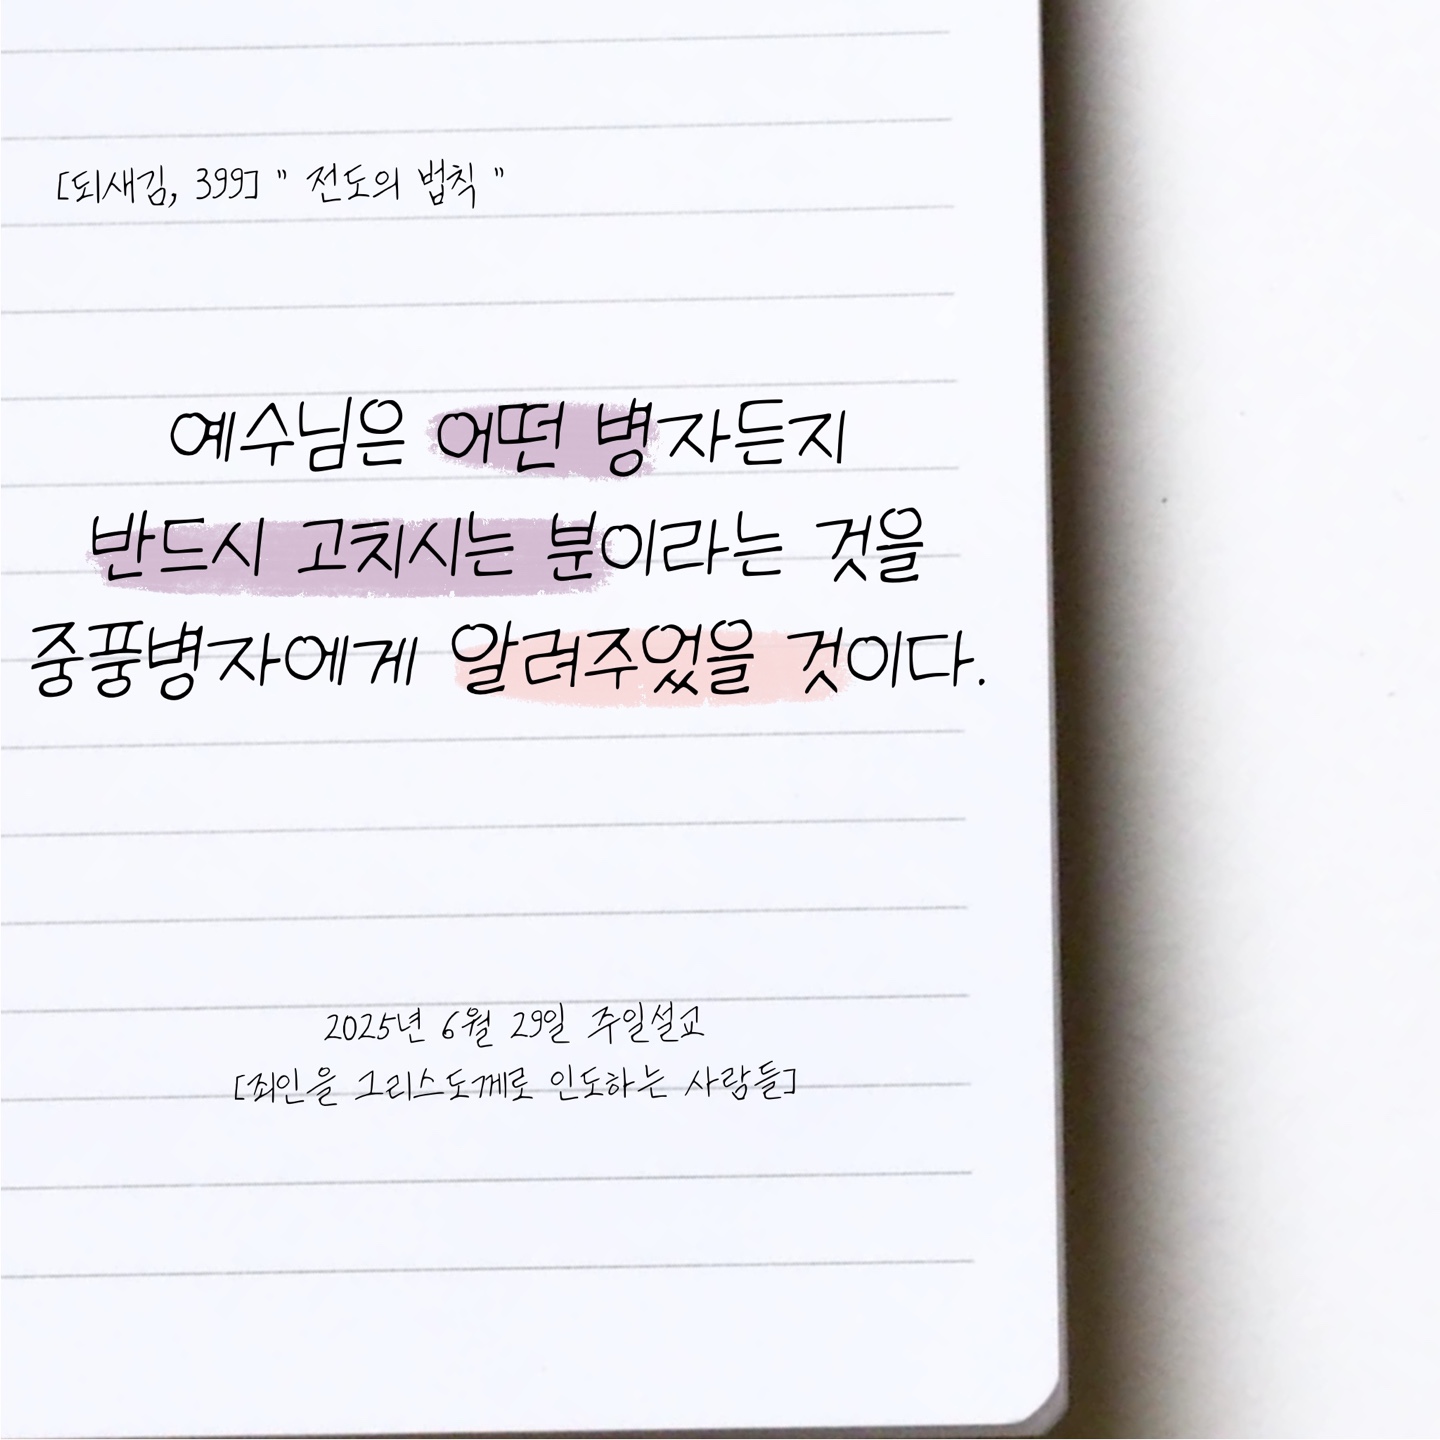 [되새김, 399] " 전도의 법칙 "
예수님은 어떤 병자든지
반드시 고치시는 분이라는 것을
중풍병자에게 알려주었을 것이다.
2025년 6월 29일 주일설교
[죄인을 그리스도께로 인도하는 사람들]